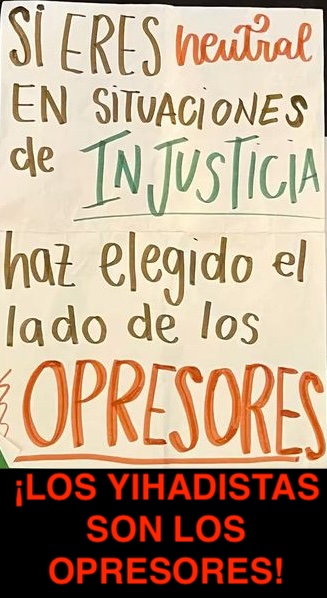 SI ERES neutral
EN SITUACIONES
de INJUSTICIA
haz elegido el
lado de los
OPRESORES
¡LOS YIHADISTAS
SON LOS
OPRESORES!